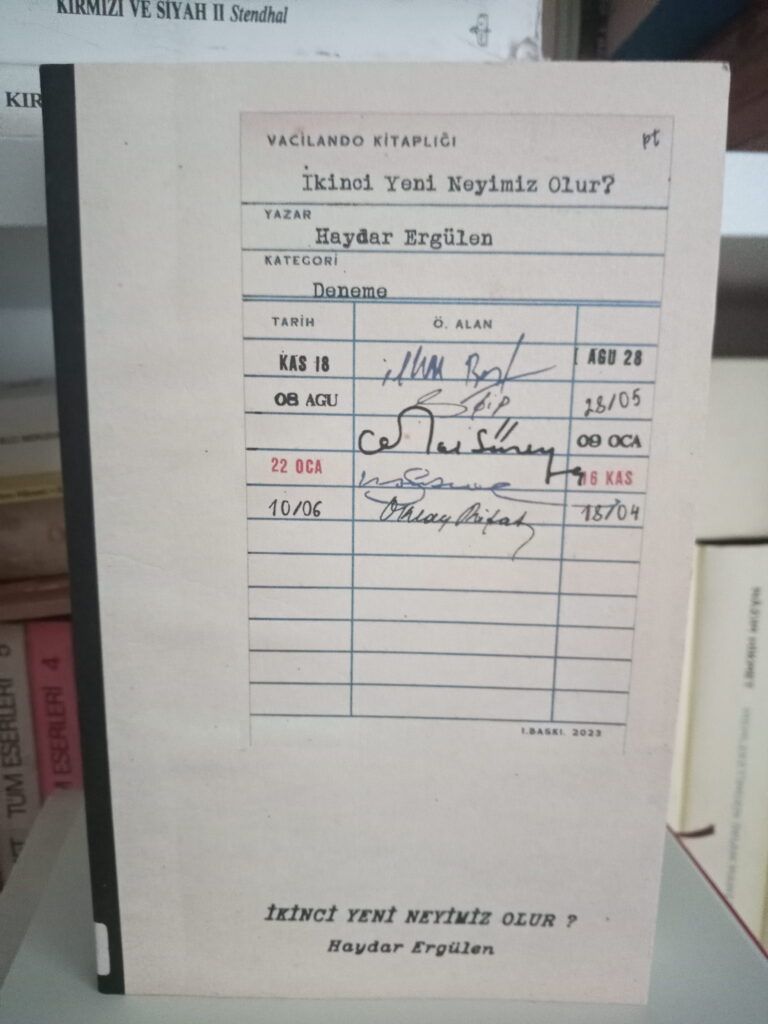 KIRMIZI VE SİYAH II Stendhal
KIR
VACİLANDO KİTAPLIĞI
pt
İkinci Yeni Neyimiz Olur?
YAZAR
Haydar Ergülen
KATEGORİ
Deneme
TARİH Ö. ALAN
KAS 18 ilhan Berk AGU 28
08 AGU 28/05
Cemal Süreya 09 OCA
22 OCA 16 KAS
10/06 Oktay Rifat 18/04
1.BASKI. 2023
İKİNCİ YENİ NEYİMİZ OLUR ?
Haydar Ergülen
TÜM ESERLERİ 5
ESERLERİ 4